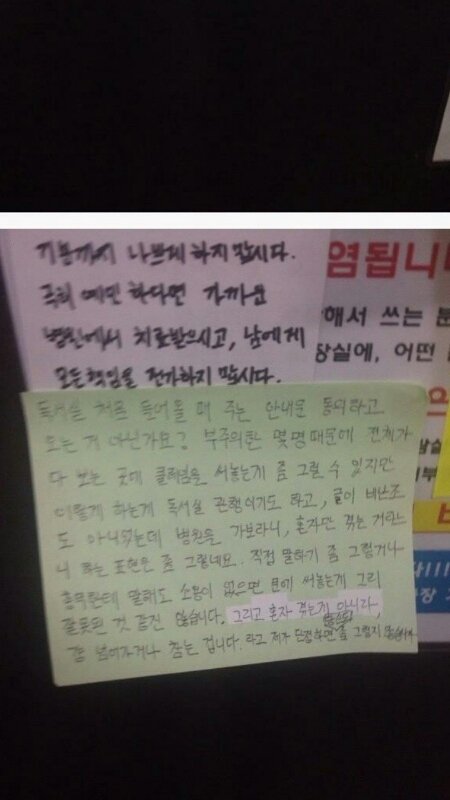 기분까지 나쁘게 하지 맙시다.
극히 예민 하다면 가까운
병원에서 치료받으시고, 남에게
모든책임을 전가하지 맙시다.
염됩니
해서 쓰는 분
장실에, 어떤
독서실 처음 들어올 때 주는 안내문 동의하고
오는 거 아닌가요? 부주의한 몇명때문에 전체가
다 보는 곳에 클레임을 써놓는게 좀 그럴 수 있지만
이렇게 하는게 독서실 관행이기도 하고, 글이 비난조
도 아니었는데 병원을 가보라니, 혼자만 겪는 거라느
니 하는 표현은 좀 그렇네요. 직접 말하기 좀 그렇거나
말해도 소용이 없으면 써놓는게 그리
잘못된 것 같진 않습니다. 그리고 혼자 겪는게 아니라,
걍 넘어가거나 참는 겁니다. 라고 제가 단정하면 좀 그렇지 않습니까